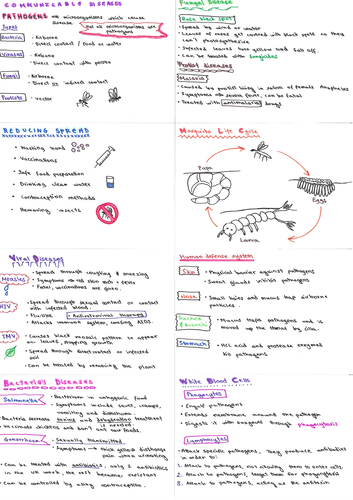 COMMUNICABLE DISEASES
PATHOGENS are microorganisms which cause
disease.
Not all microorganisms are
pathogens
Types
Bacteria
• Airborne
• Direct contact / food or water
Viruses
• Airborne
• Direct contact with
Fungi
• Airborne
• Direct or indirect contact
Protists
• Vector
Fungal Disease
Rose black spot
• Spread by wind or water
• Leaves of rose get covered with black spots so they
can't photosynthesise
• Infected leaves turn yellow and fall off.
• Can be treated with fungicides
Protist diseases
Malaria
• Caused by protist living in saliva of female Anopheles
• Symptoms are severe fever, can be fatal
• Treated with antimalarial drugs
REDUCING SPREAD
• Washing hand
• Vaccinations
• Safe food preparation
• Drinking clean water
• Contraception methods
• Removing insects
Mosquito Life Cycle
Pupa
Eggs
Larva
Viral Diseases
Measles
• Spread through coughing & sneezing
• Symptoms: red skin rash + fever
• Fatal, vaccinations are given.
HIV
• Spread through sexual contact or contact
with infected blood.
• Flu-like
• Antiretroviral therapy
• Attacks immune system, causing AIDS.
TMV
• Causes black mosaic pattern to appear
on leaves, stopping growth.
• Spread through direct contact or infected
soil
• Can be treated by removing the plant
Human defence system
Skin
• Physical barrier against pathogens
• Sweat glands inhibit pathogens
Nose
• Small hairs and mucus trap airborne
particles.
Trachea
& bronchi
• Mucus traps pathogens and is
moved up the throat by cilia.
Stomach
• HCl acid and protease enzymes
kill pathogens.
Bacterial Diseases
Salmonella
• Bacterium in unhygienic food
• Symptoms include fever, cramps,
vomiting and diarrhoea
Gonorrhoea
• Sexually transmitted
• Symptoms → thick yellow discharge
pain when urinating
• Can be treated with antibiotics
• Can be controlled by using contraception.
White Blood Cells
Phagocytes
• Engulf pathogens
• Extends membrane around the pathogen
• Digests it with enzymes through phagocytosis
Lymphocytes
• Attack specific pathogens, they produce antibodies
in order to:
1. Attach to pathogens, not allowing them to enter cells
2. Attach to pathogens, target them for phagocytosis
3. Attach to pathogens, acting as antitoxins